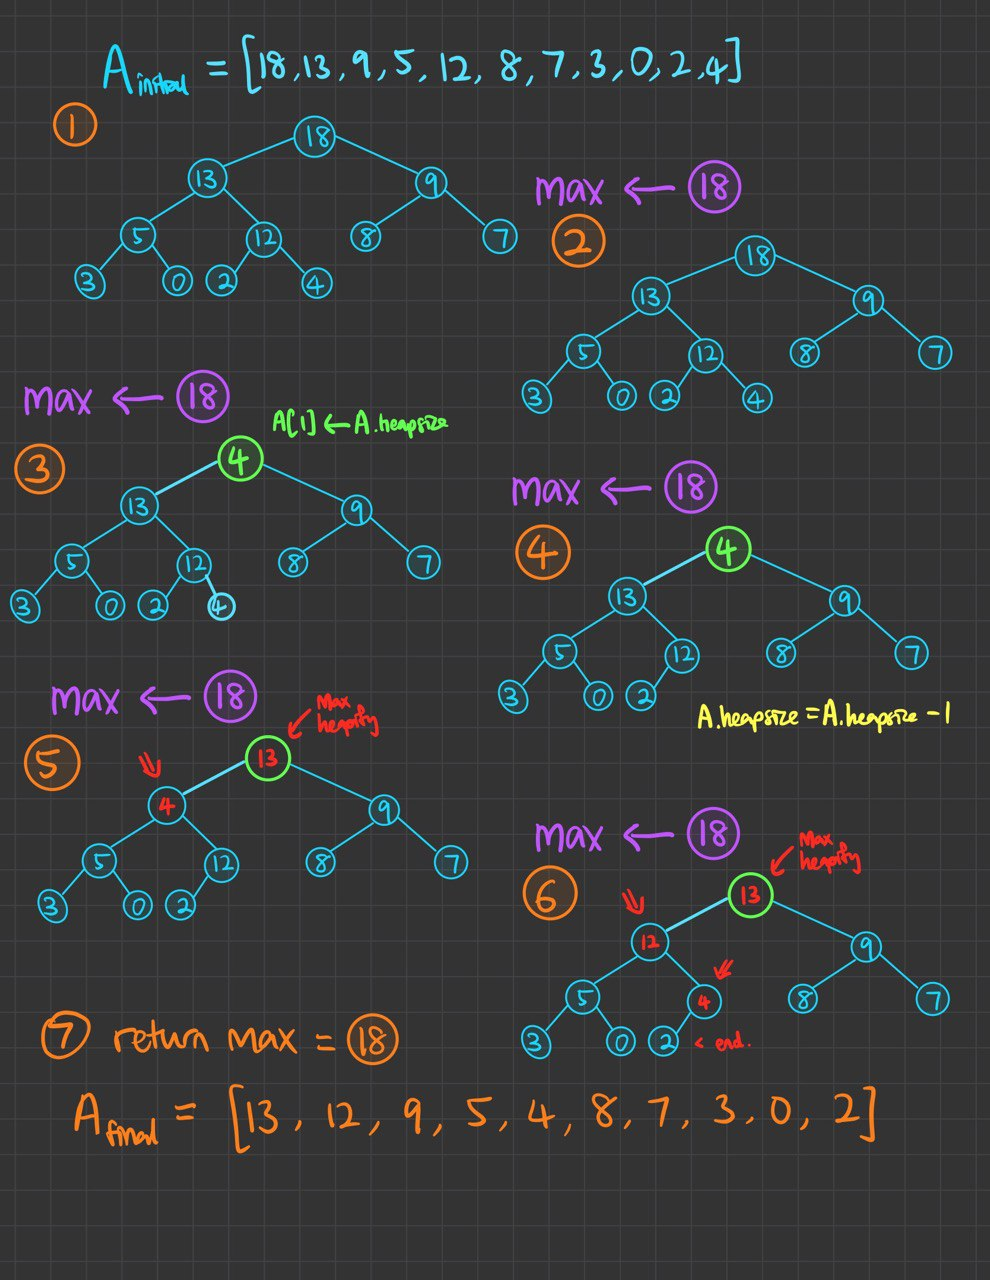 A initial = [18, 13, 9, 5, 12, 8, 7, 3, 0, 2, 4]
①
18
13 9
5 12 8 7
3 0 2 4
max ← 18
②
18
13 9
5 12 8 7
3 0 2 4
max ← 18
A[1] ← A.heapsize
③
4
13 9
5 12 8 7
3 0 2 4
max ← 18
④
4
13 9
5 12 8 7
3 0 2
A.heapsize = A.heapsize - 1
max ← 18
Max
heapify
⑤
13
4 9
5 12 8 7
3 0 2
max ← 18
Max
heapify
⑥
13
12 9
5 4 8 7
3 0 2 < end.
⑦ return max = 18
A final = [13, 12, 9, 5, 4, 8, 7, 3, 0, 2]